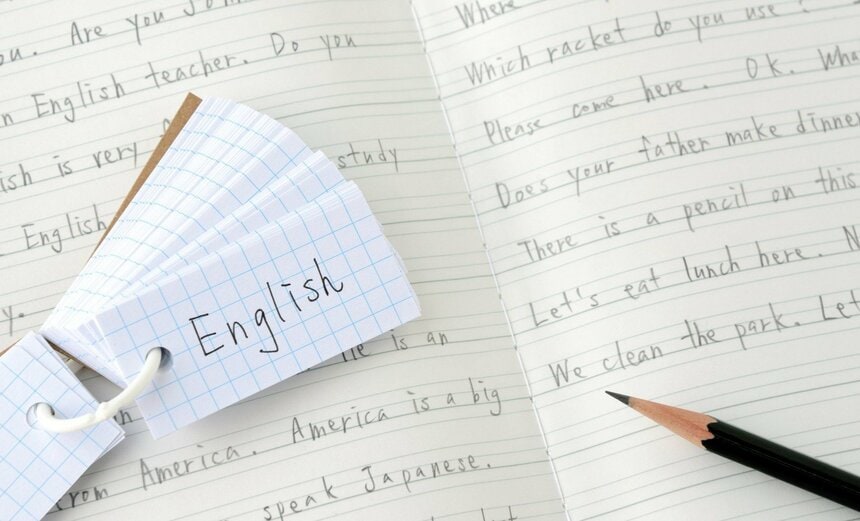 Are you
English teacher. Do you
is very
study
English
y.
He is an
from America. America is a big
speak Japanese.
English
Where
Which racket do you use?
Please come here. OK. What
Does your father make dinner
There is a pencil on this
Let's eat lunch here. N
We clean the park. Let